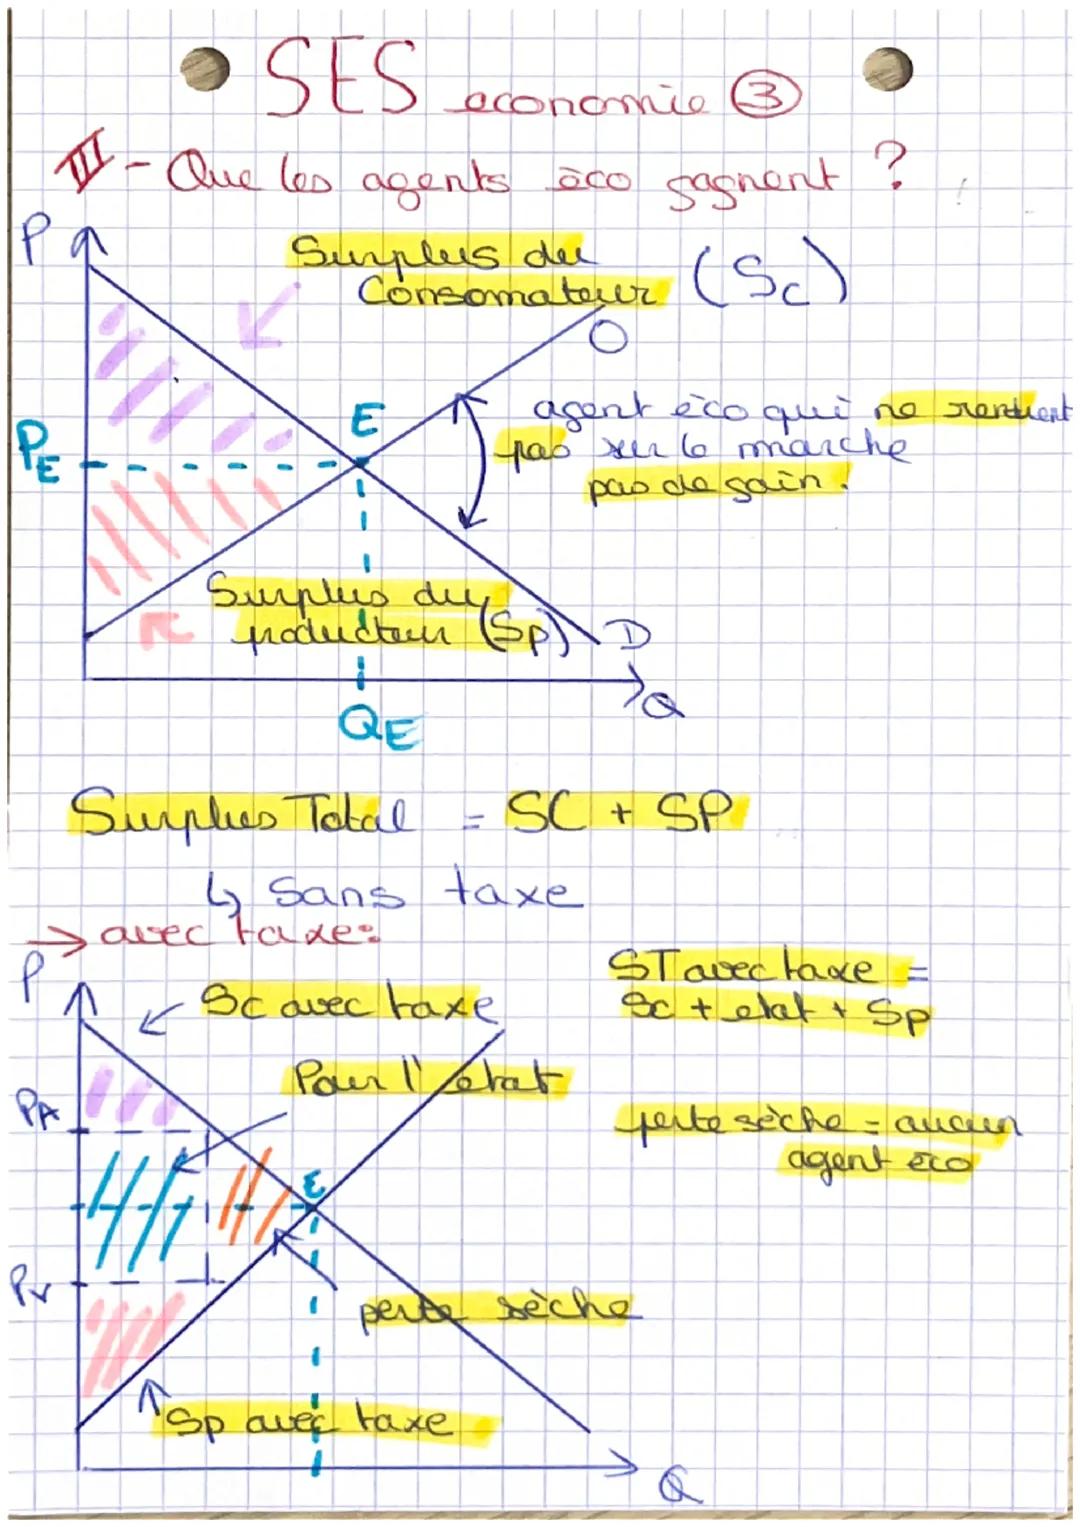 SES economie ③
III - Que les agents éco gagnent ?
P
Surplus du
Consomateur (Sc)
O
E
agent éco qui ne rentrent
pas sur le marche
pas de gain.
PE
Surplus du
producteur (Sp)
D
Q
QE
Surplus Total = SC + SP
↳ Sans taxe
→ avec taxe:
P
Sc avec taxe
ST avec taxe =
Sc + etat + Sp
Pour l'etat
PA
perte sèche = aucun
agent éco
E
Pv
perte sèche
Sp avec taxe
Q